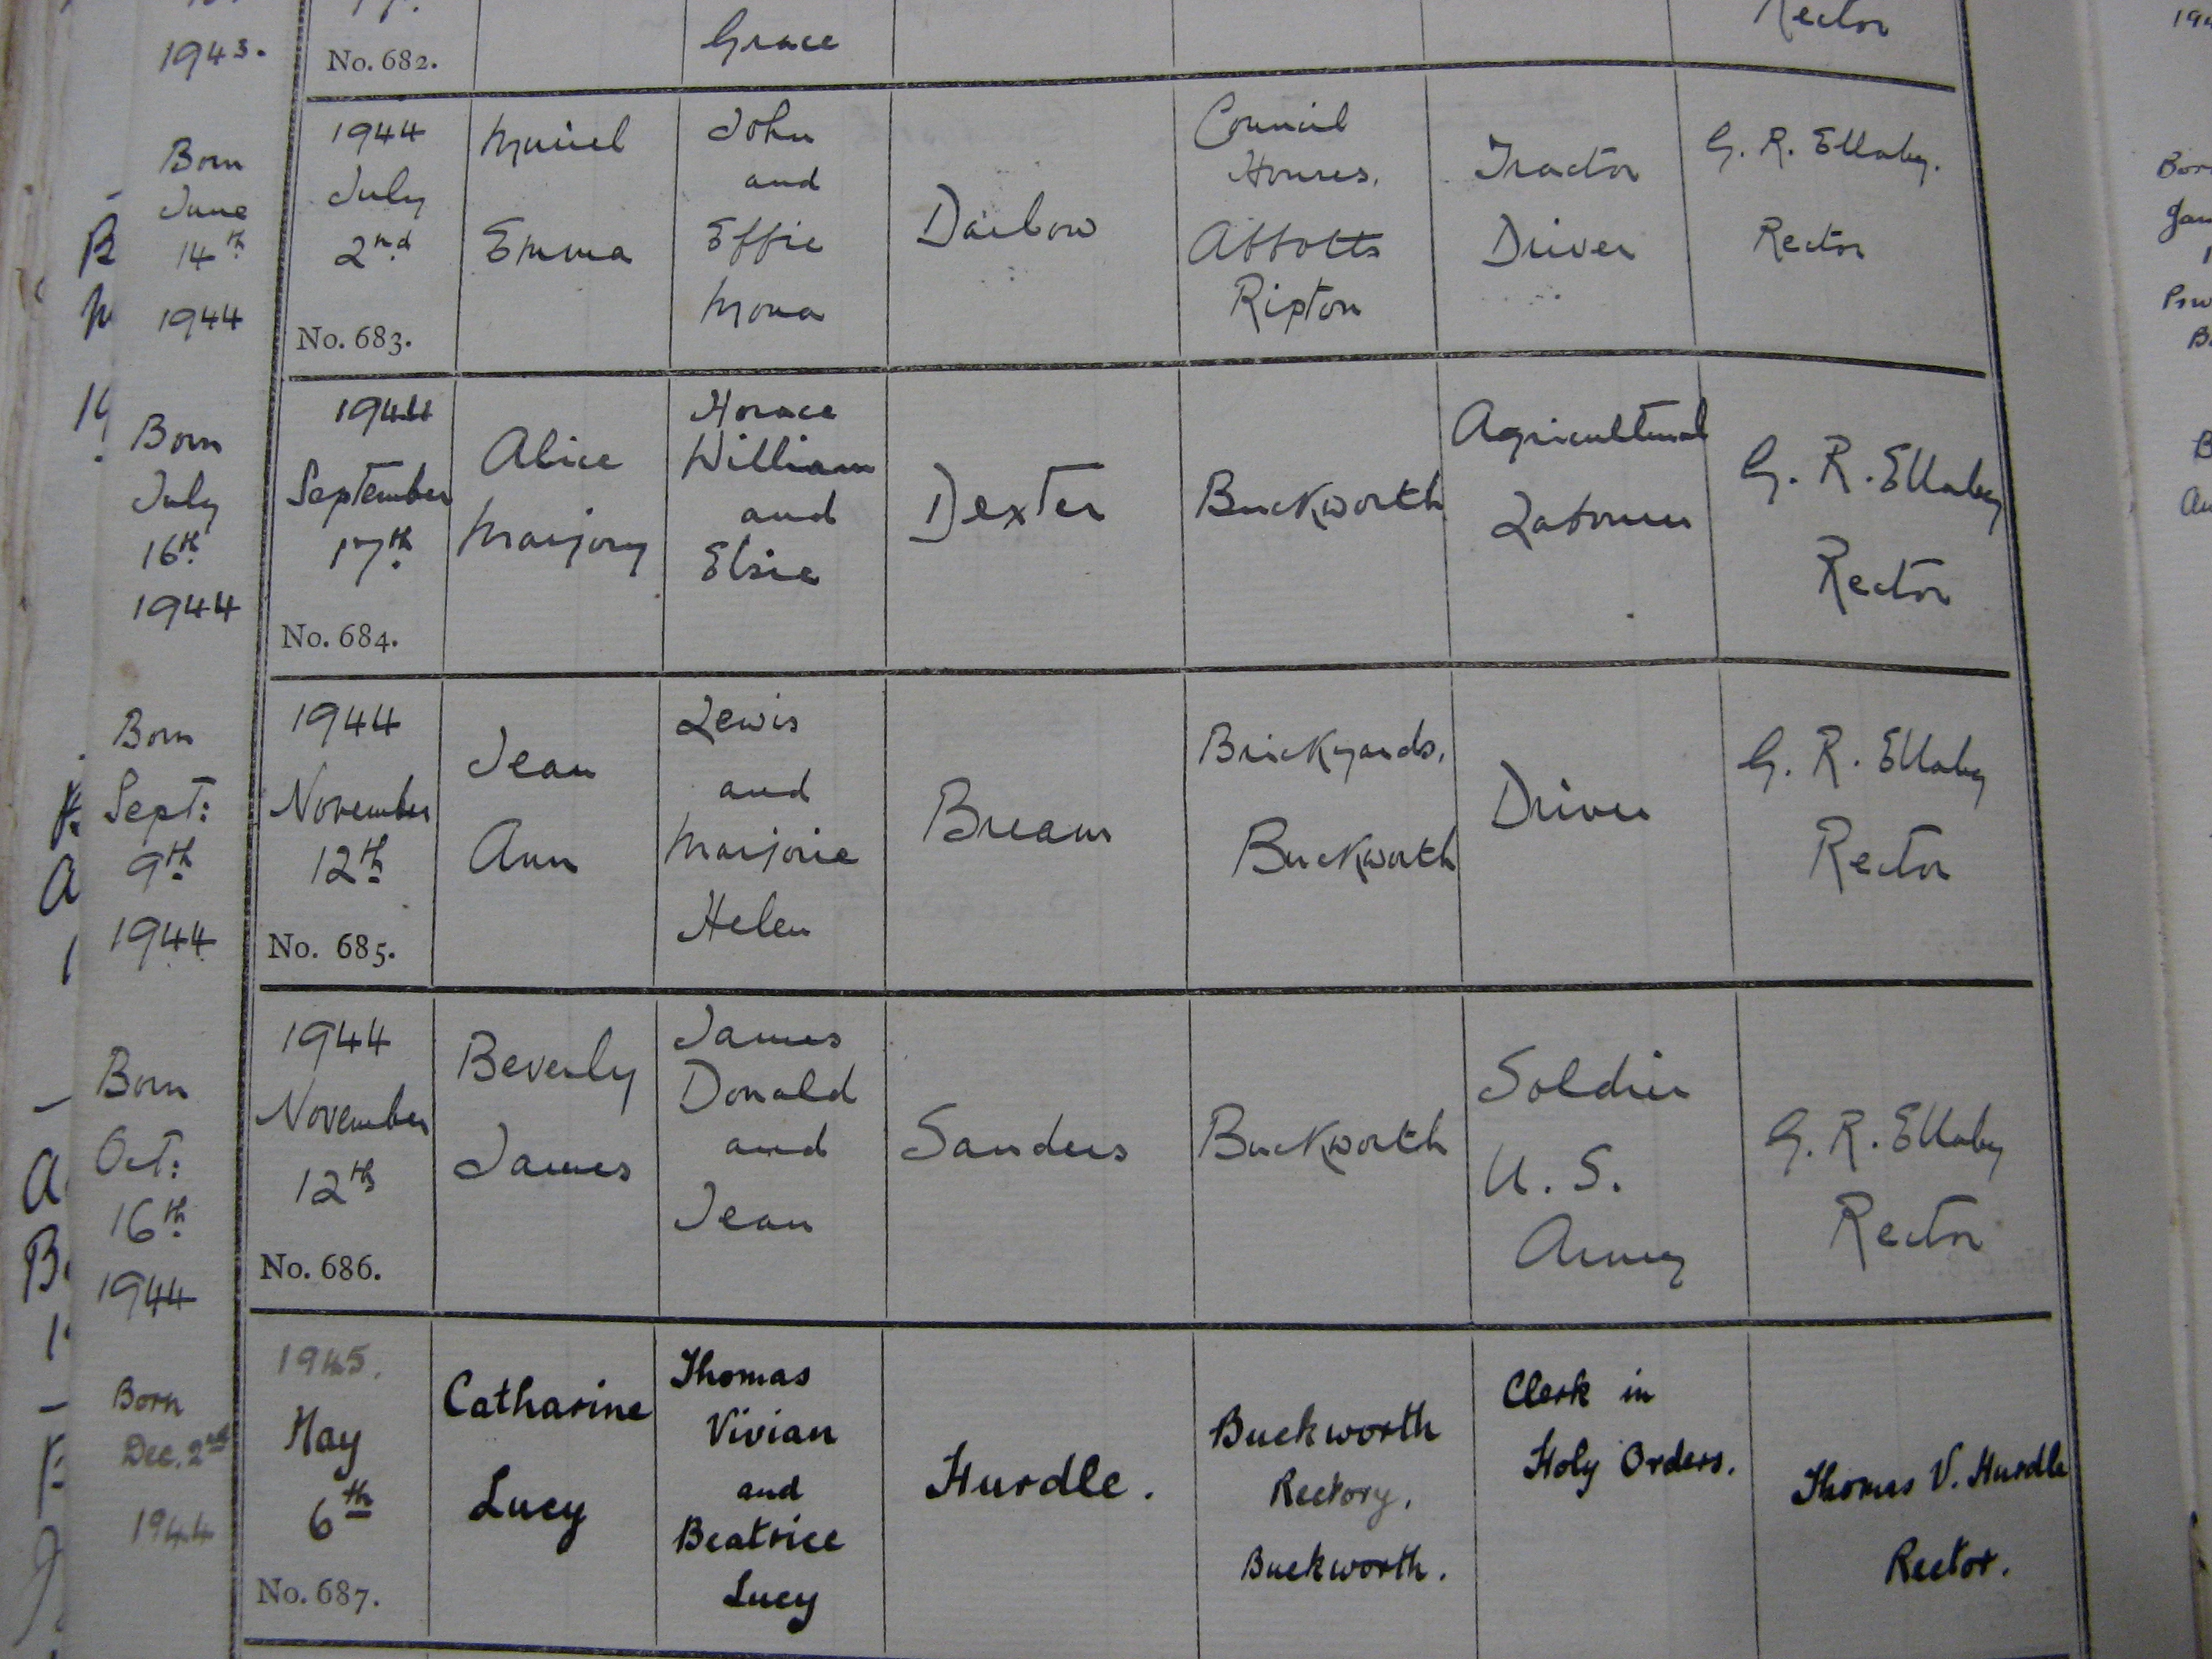 1943.
No. 682.
Grace
Rector
Born
June
14th
1944
1944
July
2nd
No. 683.
Muriel
Emma
John
and
Effie
Mona
Darlow
Council
Houses.
Abbotts
Ripton
Tractor
Driver
G. R. Ellaby.
Rector
Born
July
16th
1944
1944
September
17th
No. 684.
Alice
Marjory
Horace
William
and
Elsie
Dexter
Buckworth
Agricultural
Labourer
G. R. Ellaby
Rector
Born
Sept:
9th
1944
1944
November
12th
No. 685.
Jean
Ann
Lewis
and
Marjorie
Helen
Bream
Brickyards.
Buckworth
Driver
G. R. Ellaby
Rector
Born
Oct:
16th
1944
1944
November
12th
No. 686.
Beverly
James
James
Donald
and
Jean
Sanders
Buckworth
Soldier
U. S.
Army
G. R. Ellaby
Rector
Born
Dec. 2nd
1944
1945.
May
6th
No. 687.
Catharine
Lucy
Thomas
Vivian
and
Beatrice
Lucy
Hurdle.
Buckworth
Rectory.
Buckworth.
Clerk in
Holy Orders.
Thomas V. Hurdle
Rector.